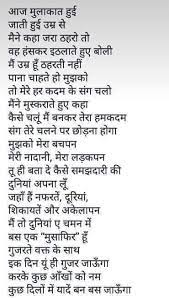 आज मुलाकात हुई
जाती हुई उम्र से
मैने कहा जरा ठहरो तो
वह हंसकर इठलाते हुए बोली
मैं उम्र हूँ ठहरती नहीं
पाना चाहते हो मुझको
तो मेरे हर कदम के संग चलो
मैंने मुस्कराते हुए कहा
कैसे चलूं मैं बनकर तेरा हमकदम
संग तेरे चलने पर छोड़ना होगा
मुझको मेरा बचपन
मेरी नादानी, मेरा लड़कपन
तू ही बता दे कैसे समझदारी की
दुनियां अपना लूँ
जहाँ हैं नफरतें, दूरियां,
शिकायतें और अकेलापन
मैं तो दुनियां ए चमन में
बस एक "मुसाफिर" हूँ
गुजरते वक्त के साथ
इक दिन यूं ही गुजर जाऊँगा
करके कुछ आँखों को नम
कुछ दिलों में यादें बन बस जाऊँगा